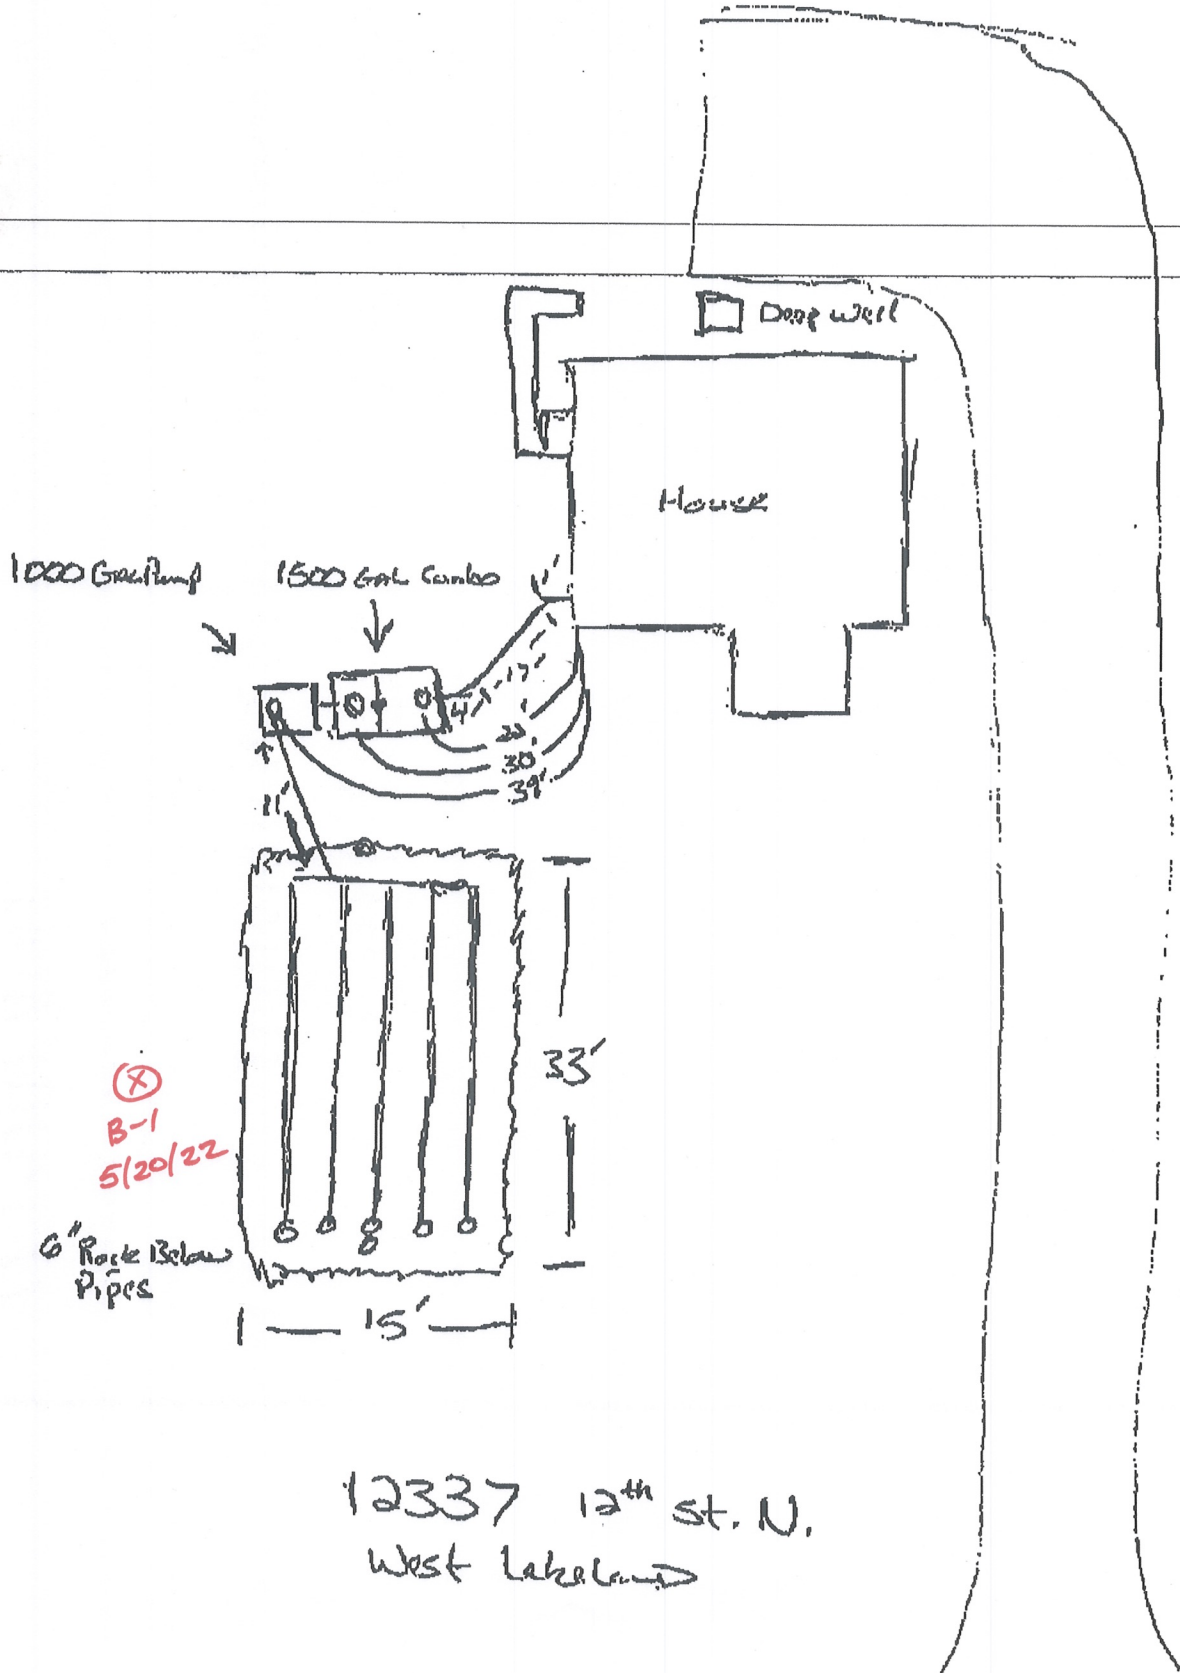 Deep Well
House
1000 Gal Pump
1500 Gal Combo
11'
4'
30'
39'
11'
33'
X
B-1
5/20/22
6" Rock Below
Pipes
15'
12337 12th St. N.
West Lakeland